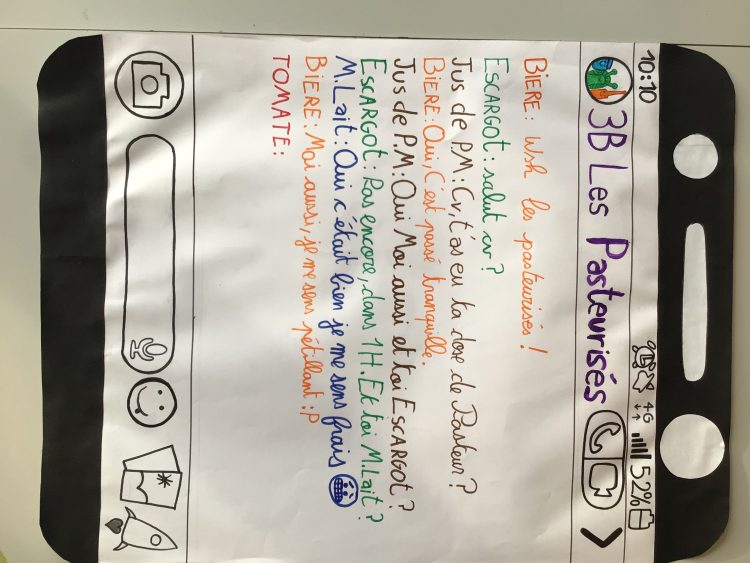 10:10 4G 52%
3B Les Pasteurisés
BIERE: Wsh les pasteurisés !
ESCARGOT: salut cv ?
Jus de P.M: Cv, t'as eu ta dose de Pasteur ?
BIERE: Oui, C'est passé tranquille.
Jus de P.M: Oui Moi aussi et toi ESCARGOT ?
ESCARGOT: Pas encore, dans 1H. Et toi M. Lait ?
M. Lait: Oui c'était bien je me sens frais
BIERE: Moi aussi, je me sens pétillant :P
TOMATE: